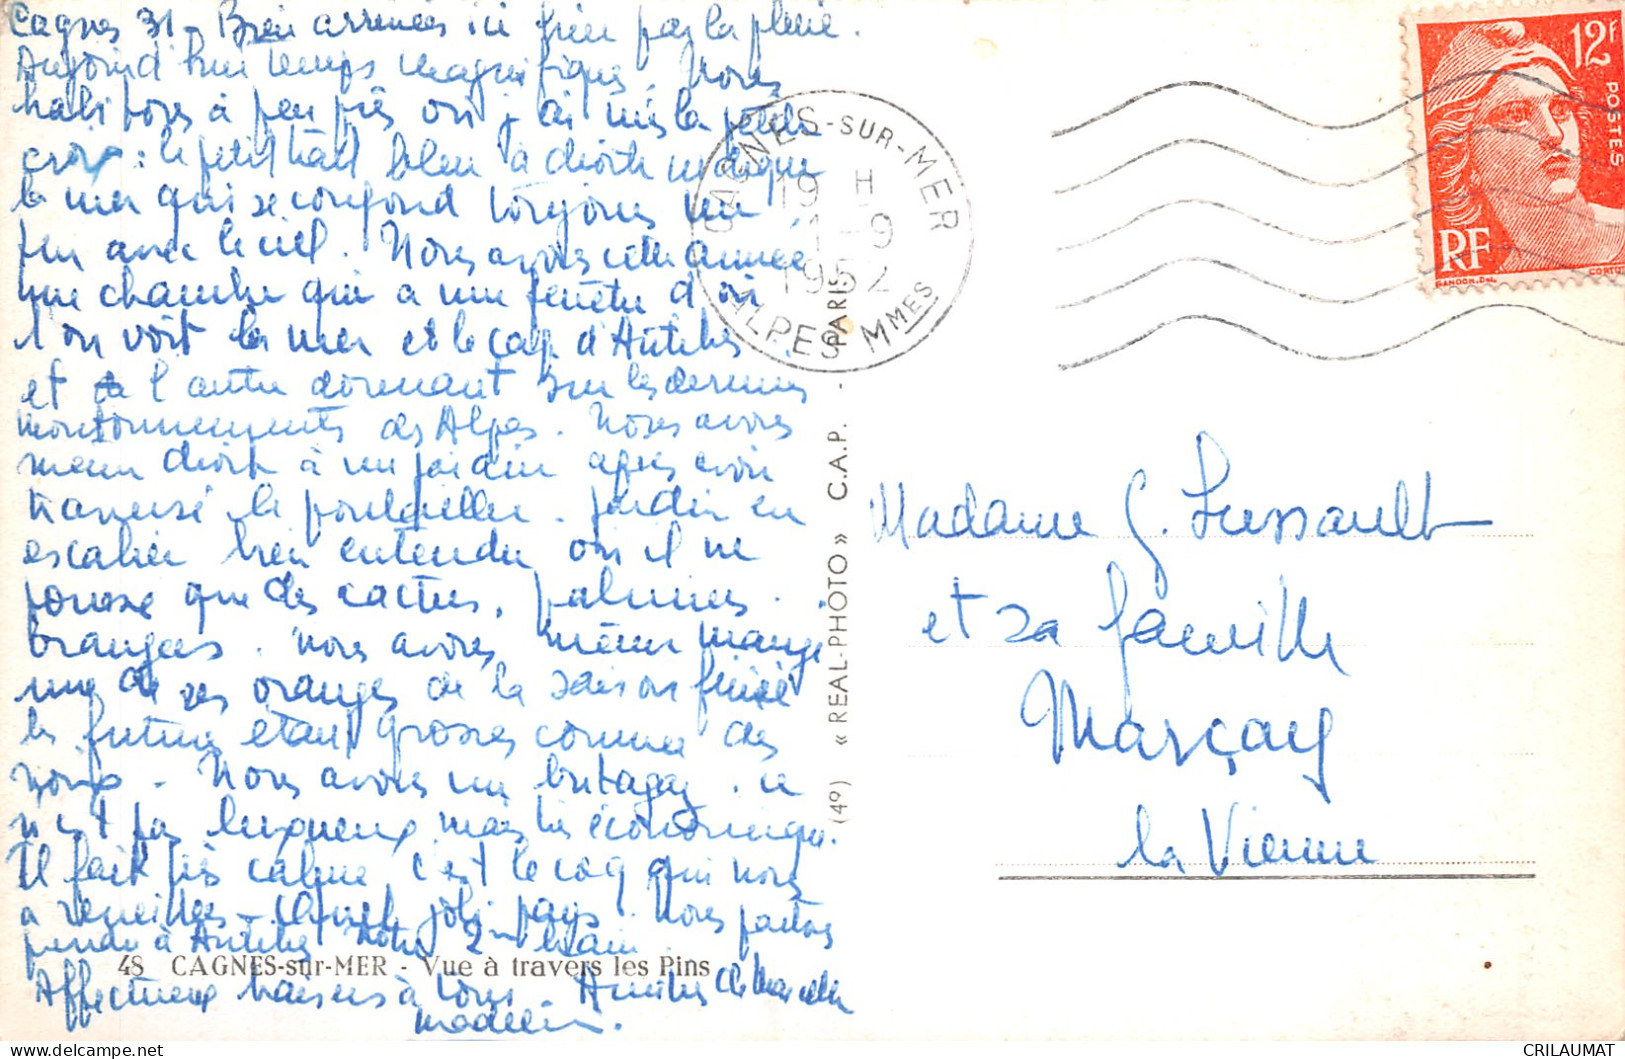 Cagnes 31 - Bien arrivées ici hier par la pluie.
Aujourd'hui temps magnifique. Nous
habitons à peu près où j'ai mis la petite
croix : le petit trait bleu à droite indique
la mer qui se confond toujours un
peu avec le ciel. Nous avons cette année
une chambre qui a une fenêtre d'où
l'on voit la mer et le cap d'Antibes
et de l'autre donnant sur les derniers
moutonnements des Alpes. Nous avons
même droit à un jardin après avoir
traversé la passerelle. Jardin en
escalier bien entendu où il ne
pousse que des cactus, palmiers.
orangers. Nous avons même mangé
une de ces oranges de la saison finie
les futures étant grosses comme des
noix - Nous avons un butagaz. ce
n'est pas luxueux mais très économique.
Il fait très calme, c'est le coq qui nous
a réveillées - joli pays. Nous partons
prendre à Antibes notre 2me bain
Affectueux baisers à tous. Amitiés de Marcelle
Madeleine.
48 CAGNES-sur-MER - Vue à travers les Pins
(49) « REAL-PHOTO » C.A.P. - PARIS
CAGNES-SUR-MER
19 H
1-9
1952
ALPES MMES
12F
POSTES
RF
GANDON.DEL
CORTOT
Madame G. Sussault
et sa famille
Marçay
la Vienne
CRILAUMAT